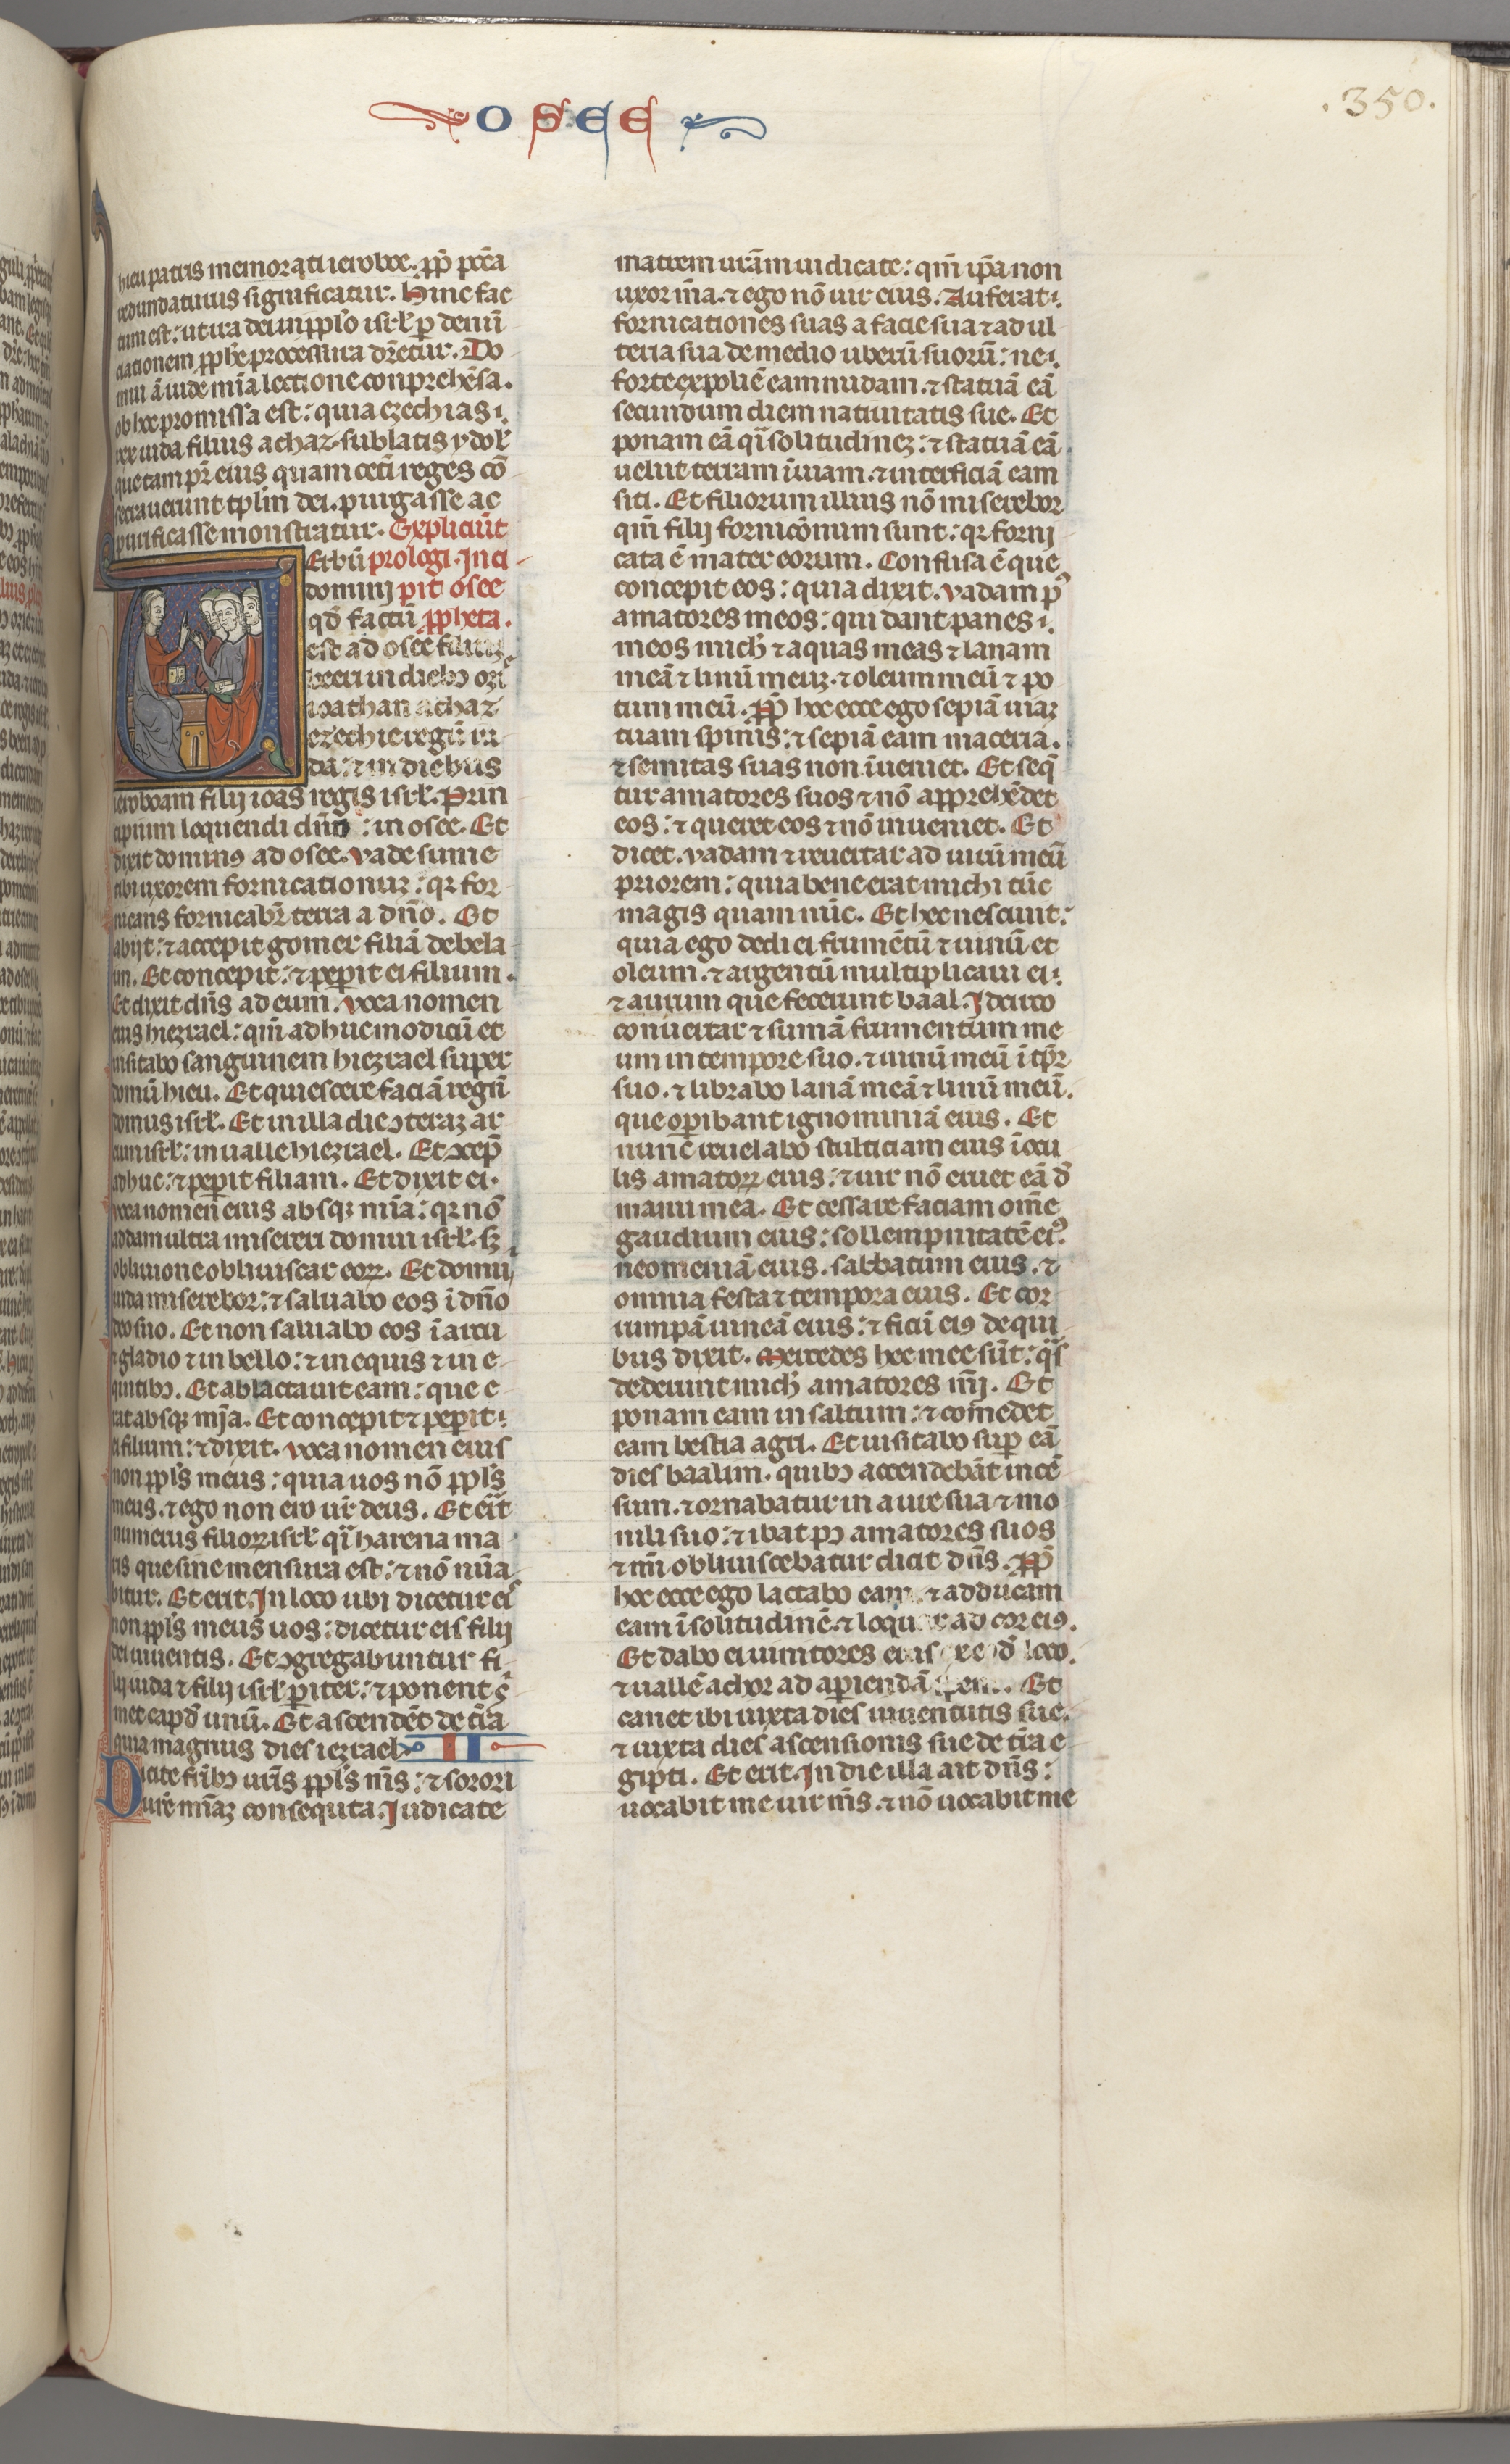 OSEE
.350.
hieu patris memorati ieroboe. ꝓp̄ pccā
redundaturus significatur. Hinc fac
tum est: ut ira dei in ppl'o isrł p denū
ciationem ꝓph̄e processura dr̄etur. Do
mui ā iude mīa lectione conprehēsa.
ob hec promissa est: quia ezechias
rex iuda filius achaz sublatis ydoł
que tam pr̄ eius quam ceti reges cō
secrauerunt tplm̄ dei. purgasse ac
purificasse monstratur. Expliciūt
Erbū prologi. Inci
domini pit osee
qd̄ factū ꝓpheta.
est ad osee filium
beeri in diebꝫ ozi
ioathan achaz
ezechie regū iu
da: ⁊ in diebus
ieroboam filij ioas regis isrł. Prin
cipium loquendi dn̄o: in osee. Et
dixit dominꝰ ad osee. vade sume
tibi uxorem fornicationuꝫ: qr for
nicans fornicabr̄ terra a dn̄o. Et
abijt: ⁊ accepit gomer filiā debela
im. Et concepit: ⁊ peperit ei filium.
Et dixit dn̄s ad eum. voca nomen
eius hiezrael: qm̄ adhuc modicū et
uisitabo sanguinem hiezrael super
domū hieu. Et quiescere faciā regnū
domus isrł. Et in illa die ↄteraꝫ ar
cum isrł: in ualle hiezrael. Et ↄcep̄
adhuc: ⁊ peperit filiam. Et dixit ei.
voca nomen eius absqꝫ mīa: qr nō
addam ultra misereri domui isrł. sꝫ
obliuione obliuiscar eoꝝ. Et domui
iuda miserebor: ⁊ saluabo eos ī dn̄o
deo suo. Et non saluabo eos ī arcu
⁊ gladio ⁊ in bello: ⁊ in equis ⁊ in e
quitibꝫ. Et ablactauit eam: que e
rat absqꝫ mīa. Et concepit ⁊ peperit
filium: ⁊ dixit. voca nomen eius
non ppl's meus: quia uos nō ppl's
meus. ⁊ ego non ero ur̄ deus. Et erit
numerus filioꝝ isrł qi harena ma
ris que sine mensura est: ⁊ nō nūa
bitur. Et erit. In loco ubi dicetur ei
non ppl's meus uos: dicetur eis filij
dei uiuentis. Et ↄgregabuntur fi
lij iuda ⁊ filij isrł pariter: ⁊ ponent s̄
met capd̄ unū. Et ascendēt de tr̄a
quia magnus dies iezrael. II
Dicite fr̄ibꝫ urīs ppl's mīs: ⁊ sorori
ure mīaꝫ consequta. Iudicate
matrem urām iudicate: qm̄ ip̄a non
uxor mīa. ⁊ ego nō uir eius. Auferat
fornicationes suas a facie sua ⁊ adul
teria sua de medio uberū suorū: ne
forte expoliē eam nudam. ⁊ statuā eā
secundum diem natiuitatis sue. Et
ponam eā qi solitudineꝫ: ⁊ statuā eā
uelut terram īuiam. ⁊ interficiā eam
siti. Et filiorum illius nō miserebor
qm̄ filij fornicōnum sunt: qr forni
cata ē mater eorum. Confusa ē que
concepit eos: quia dixit. vadam pꝰ
amatores meos: qui dant panes
meos mich ⁊ aquas meas ⁊ lanam
meā ⁊ linū meuꝫ. ⁊ oleum meū ⁊ po
tum meū. ꝓp̄ hec ecce ego sepiā uiaꝫ
tuam spinis: ⁊ sepiā eam maceria.
⁊ semitas suas non īueniet. Et seq̄
tur amatores suos ⁊ nō apprehēdet
eos: ⁊ queret eos ⁊ nō inueniet. Et
dicet. vadam ⁊ reuertar ad uirū meū
priorem: quia bene erat michi tūc
magis quam nūc. Et hec nesciuit:
quia ego dedi ei frumētū ⁊ uinū et
oleum. ⁊ argentū multiplicaui ei:
⁊ aurum que fecerunt baal. Idcirco
conuertar ⁊ sumā frumentum me
um in tempore suo. ⁊ uinū meū ī tp̄r
suo. ⁊ librabo lanā meā ⁊ linū meū.
que opibant ignominiā eius. Et
nunc reuelabo stulticiam eius ī ocu
lis amatoꝝ eius: ⁊ uir nō eruet eā d̄
manu mea. Et cessare faciam om̄e
gaudium eius: sollempnitatē eiꝰ
neomeniā eius. sabbatum eius. ⁊
omnia festa ⁊ tempora eius. Et cor
rumpā uineā eius: ⁊ ficū eiꝰ de qui
bus dixit. Mercedes hee mee sūt: qs
dederunt mich amatores mij. Et
ponam eam in saltum: ⁊ comedet
eam bestia agri. Et uisitabo sup eā
dies baalim. quibꝫ accendebāt incē
sum. ⁊ ornabatur in aure sua ⁊ mo
nili suo: ⁊ ibat pꝰ amatores suos
⁊ mī obliuiscebatur dicit dn̄s. ꝓp̄
hec ecce ego lactabo eam ⁊ adducam
eam ī solitudinē ⁊ loquar ad cor eiꝰ.
Et dabo ei uinitores eius ex eod̄ loco.
⁊ uallē achor ad apiendā spem. Et
canet ibi iuxta dies iuuentutis sue.
⁊ iuxta dies ascensionis sue de tr̄a e
gipti. Et erit. In die illa ait dn̄s:
uocabit me uir mīs. ⁊ nō uocabit me